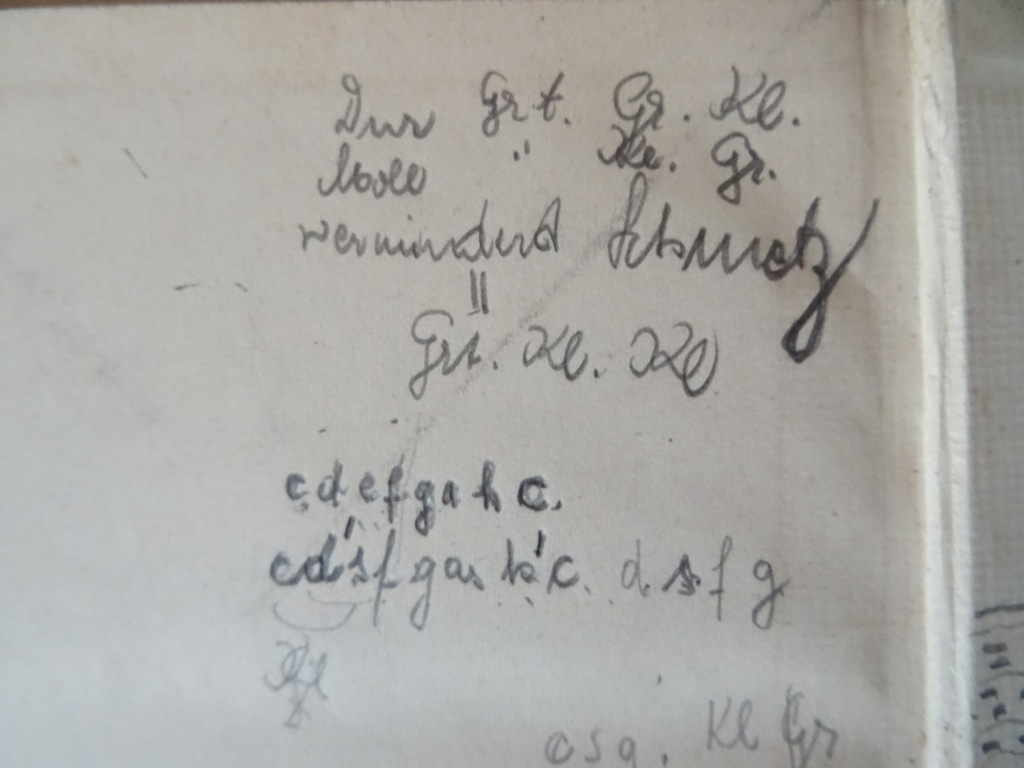 Dur Grt. Gr. Kl.
Moll " Kl. Gr.
vermindert
Grt. Kl. Kl
c d e f g a h c.
c d s f g as b c. d s f g
Kl
c s g. Kl Gr